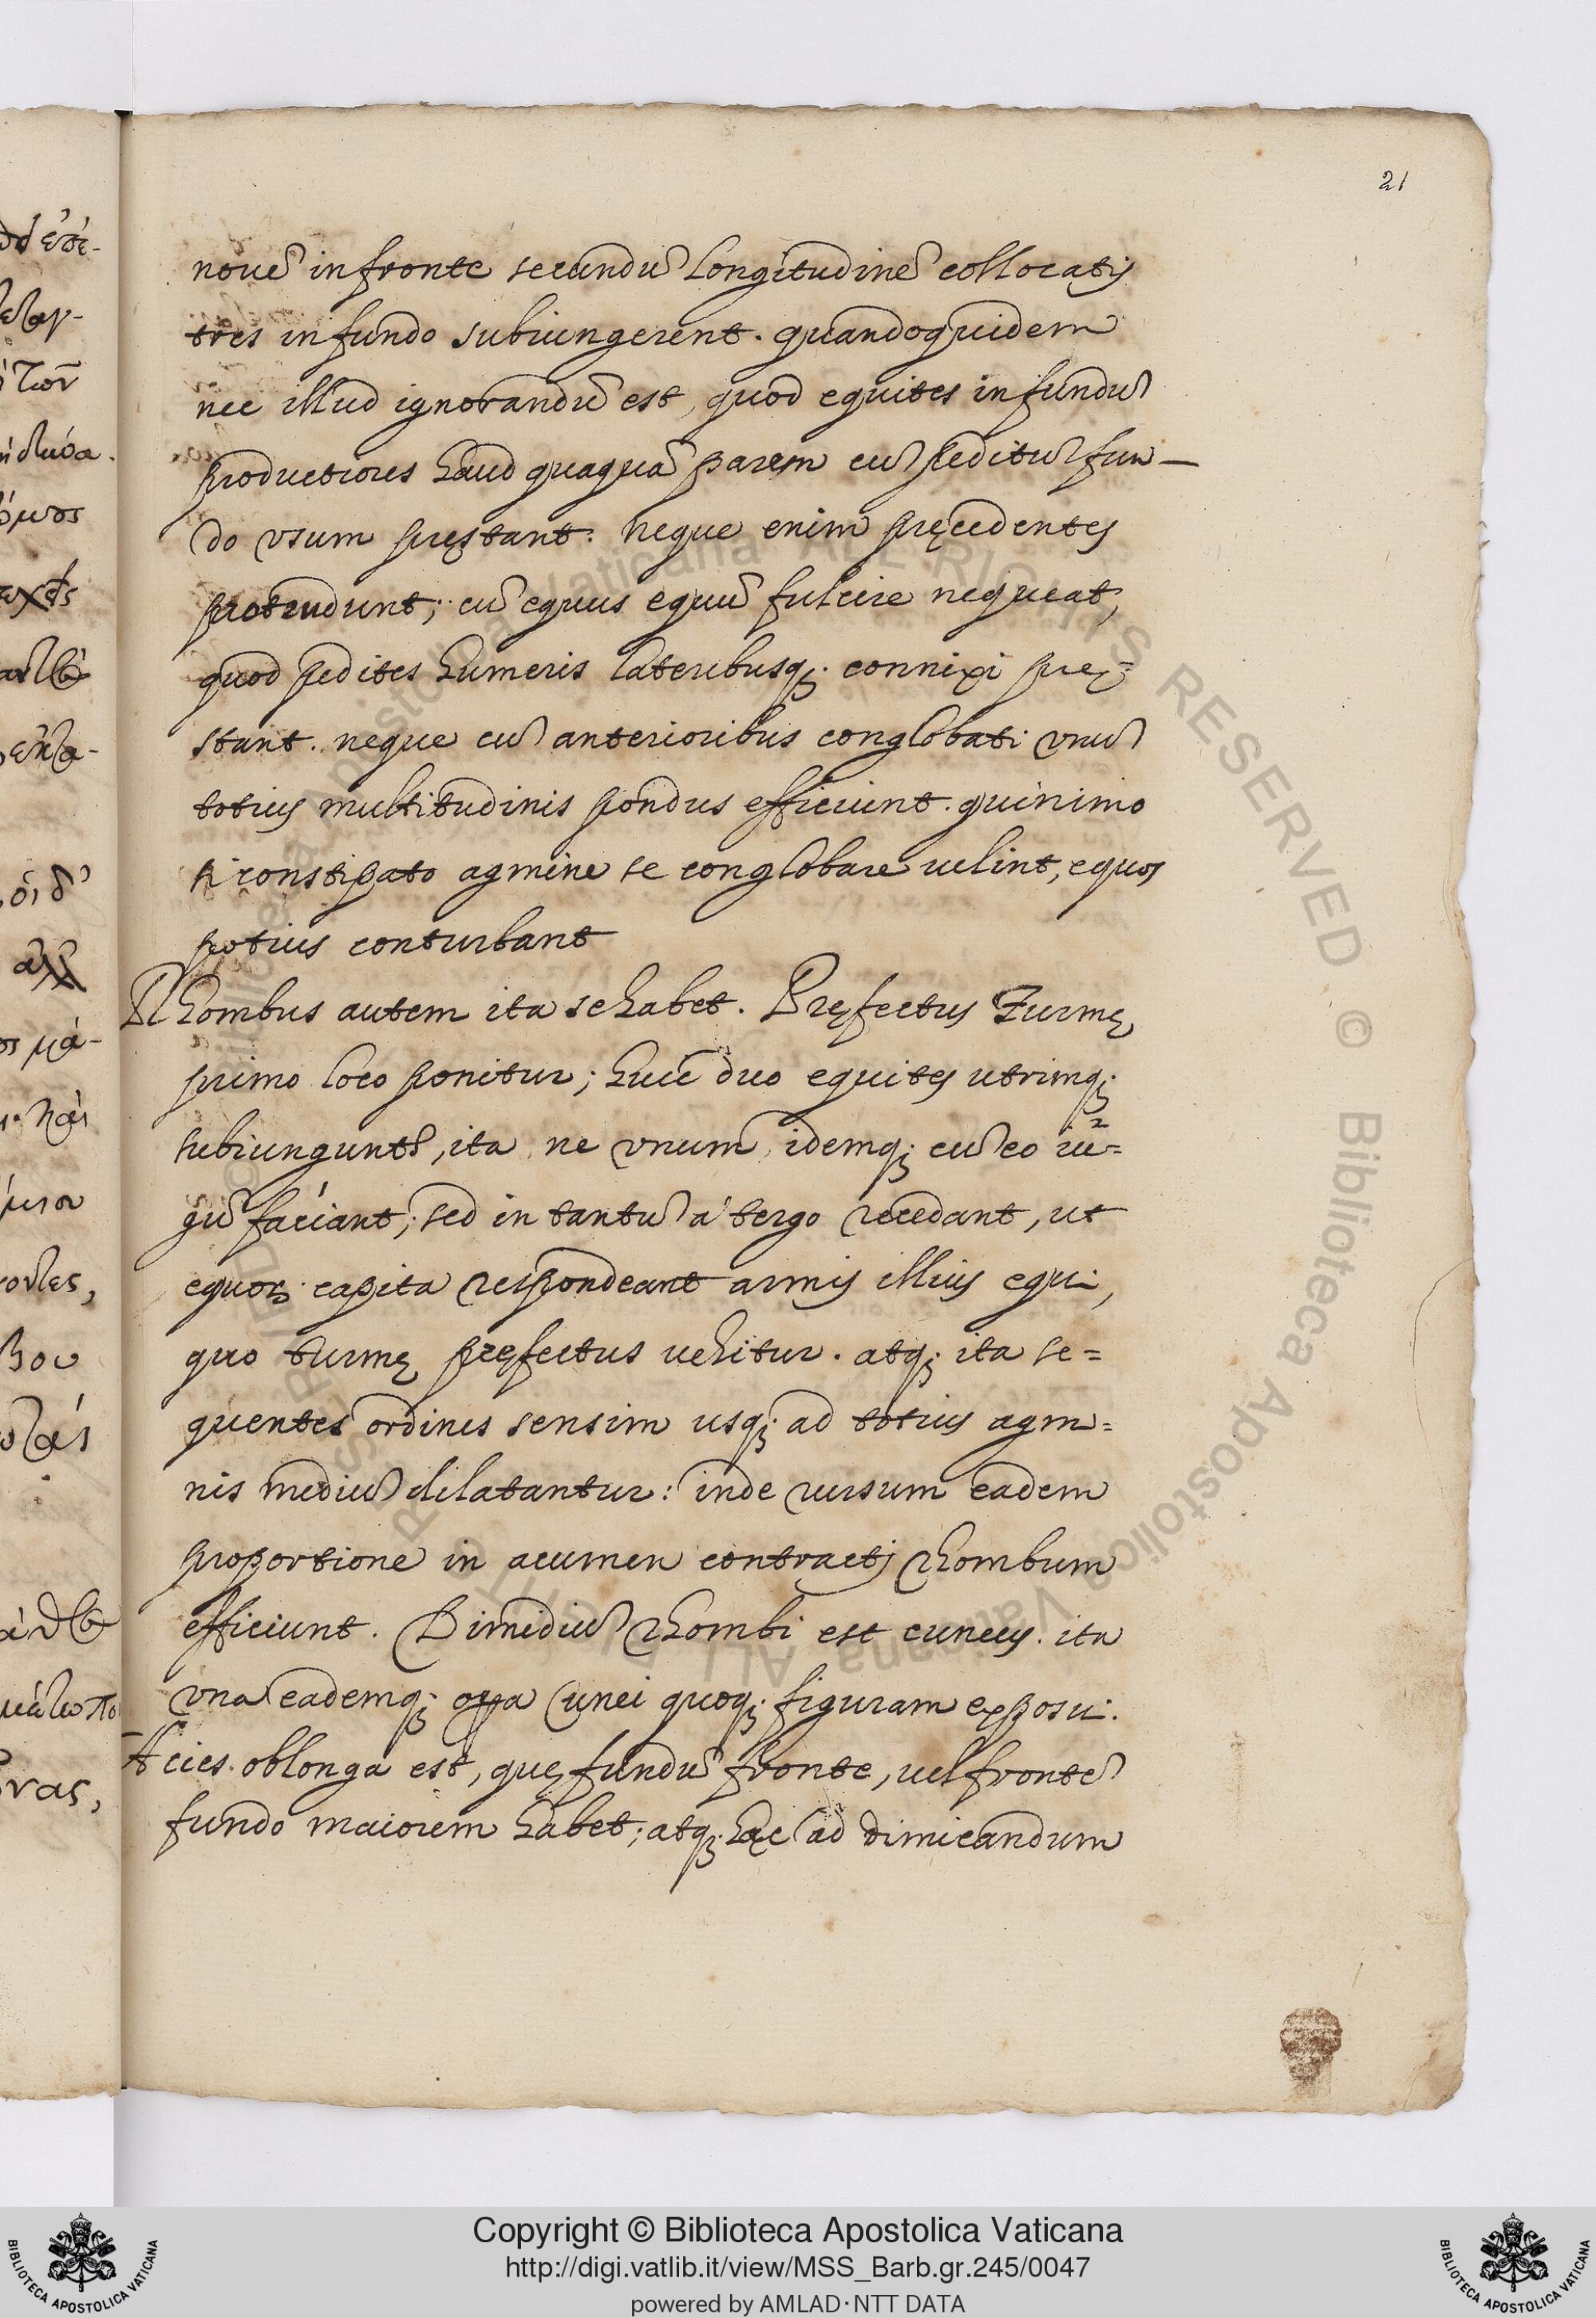 21
nouē in fronte secundū longitudinē collocatis
tres in fundo subiungerent. quandoquidem
nec illud ignorandū est, quod equites in fundū
productiores haud quaquā parem cū peditū fun-
do vsum pręstant. neque enim pręcedentes
protrudunt; cū equus equū fulcire nequeat,
quod pedites humeris lateribusq; connixi prę=
stant. neque cū anterioribus conglobati vnū
totius multitudinis pondus efficiunt. quinimo
si constipato agmine se conglobare uelint, equos
potius conturbant
Rhombus autem ita se habet. Pręfectus Turmę
primo loco ponitur; huic duo equites utrimq;
subiungunt, ita ne vnum idemq; cū eo iu=
gū faciant; sed in tantū á tergo recedant, ut
equor. capita respondeant armis illius equi,
quo turmę pręfectus uehitur. atq; ita se=
quentes ordines sensim usq; ad totius agmi=
nis mediū dilatantur: inde rursum eadem
proportione in acumen contracti rhombum
efficiunt. Dimidiū rhombi est cuneus. ita
vna eademq; opa cunei quoq; figuram exposui.
Acies oblonga est, quę fundū fronte, uel frontē
fundo maiorem habet; atq; hęc ad dimicandum
Copyright © Biblioteca Apostolica Vaticana
http://digi.vatlib.it/view/MSS_Barb.gr.245/0047
powered by AMLAD·NTT DATA